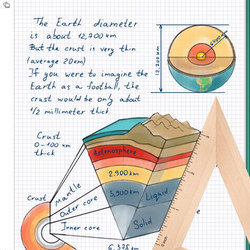 The Earth diameter
is about 12,700 km
But the crust is very thin
(average 20km)
If you were to imagine the
Earth as a football, the
crust would be only about
1/2 millimeter thick
12,700 km
Crust
0-100 km
thick
Crust
Mantle
Outer core
Inner core
2,900 km
5,900 km
Liquid
Solid
6,378 km